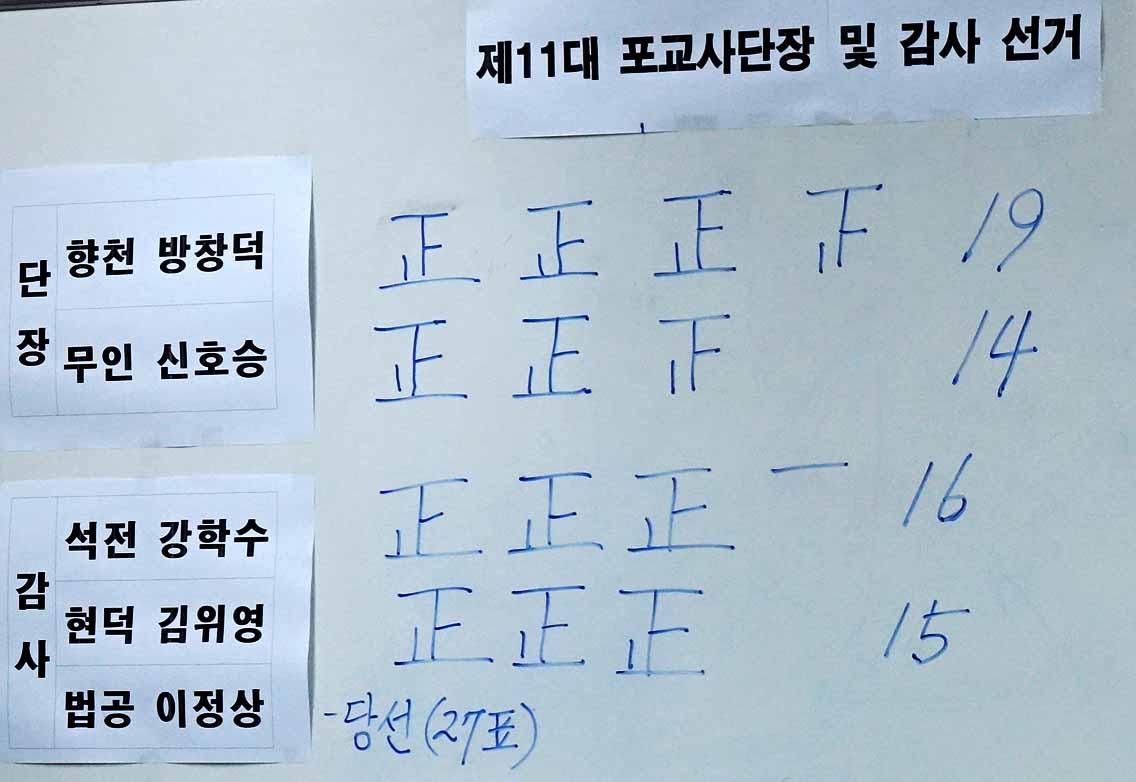 제11대 포교사단장 및 감사 선거
단장
향천 방창덕 正 正 正 𠄟 19
무인 신호승 正 正 𠄟 14
감사
석전 강학수 正 正 正 一 16
현덕 김위영 正 正 正 15
법공 이정상 -당선(27표)